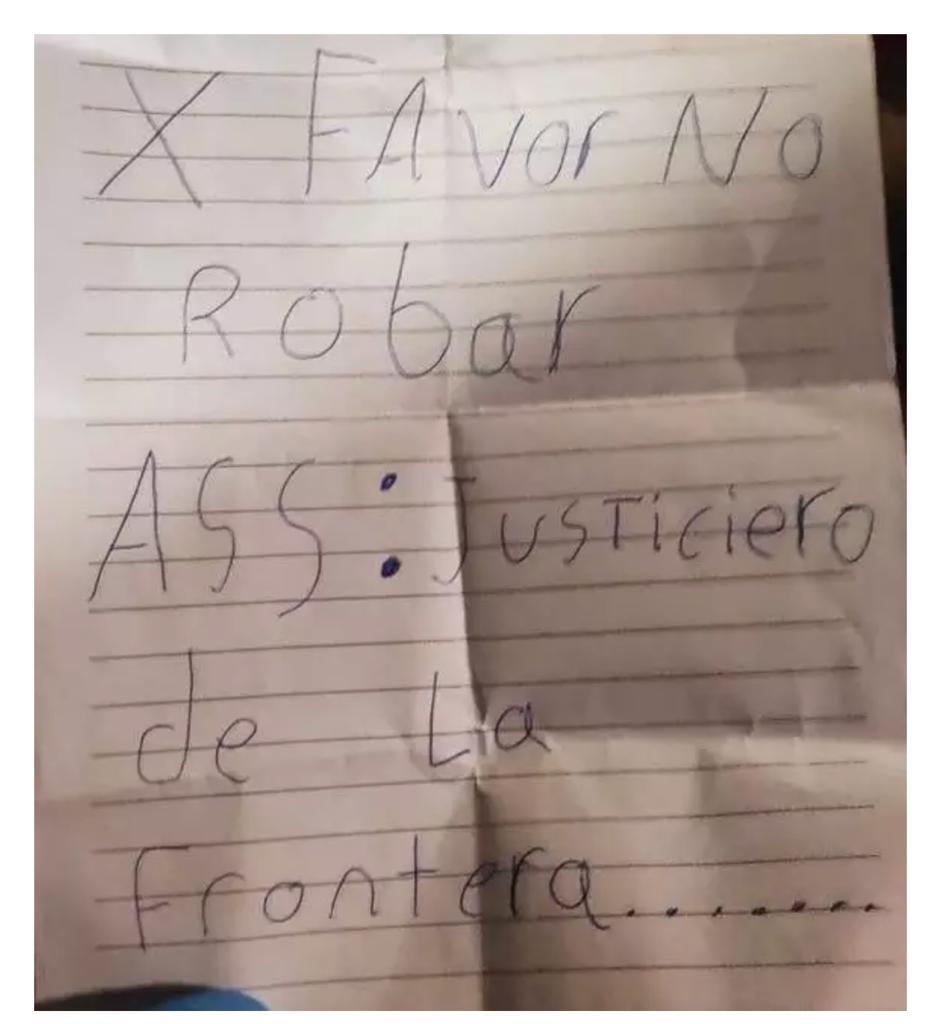 X FAvor No
Robar
ASS: Justiciero
de La
Frontera........